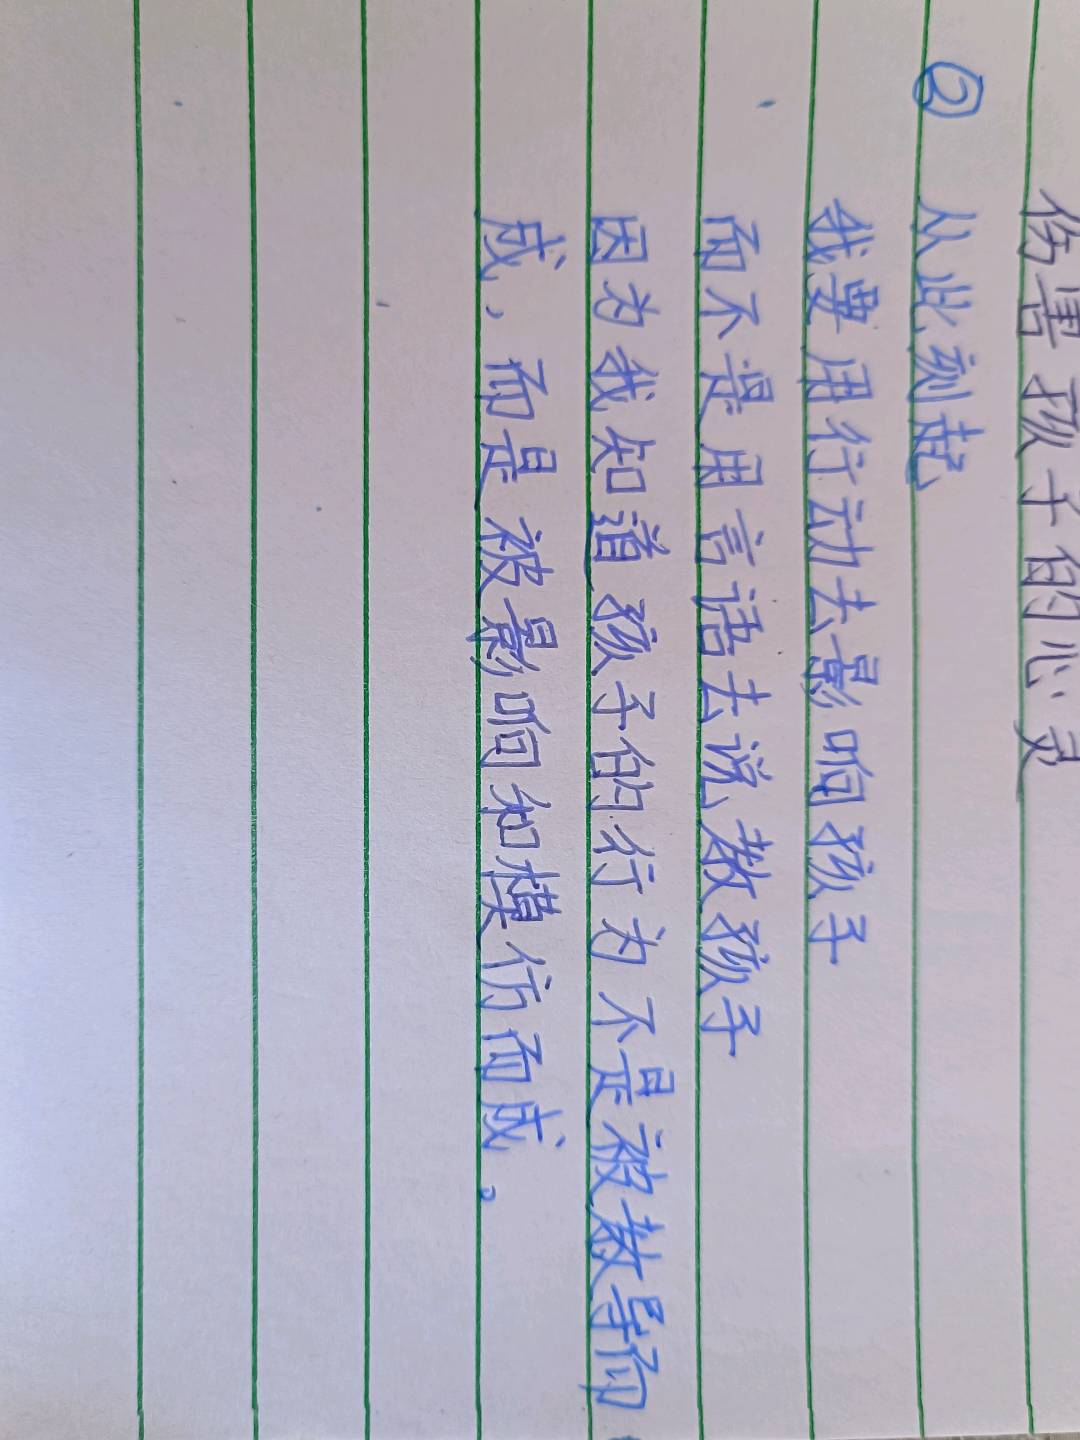 伤害孩子的心灵
② 从此刻起
我要用行动去影响孩子
而不是用言语去说教孩子
因为我知道孩子的行为不是被教导而
成、而是被影响和模仿而成。